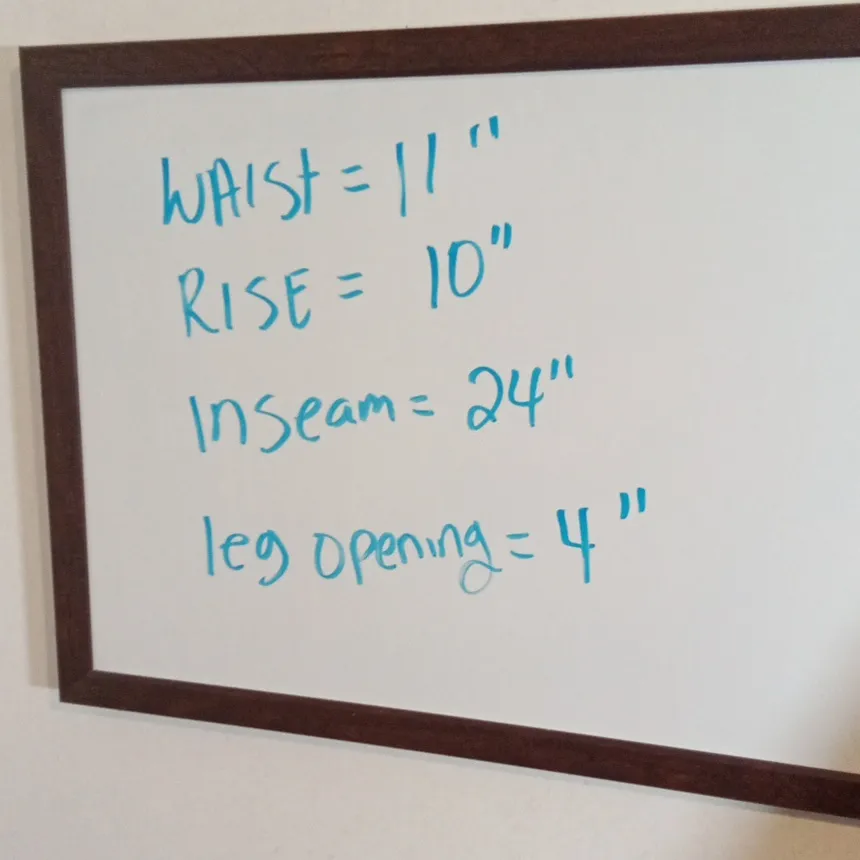 WAIST = 11"
RISE = 10"
Inseam = 24"
leg opening = 4"